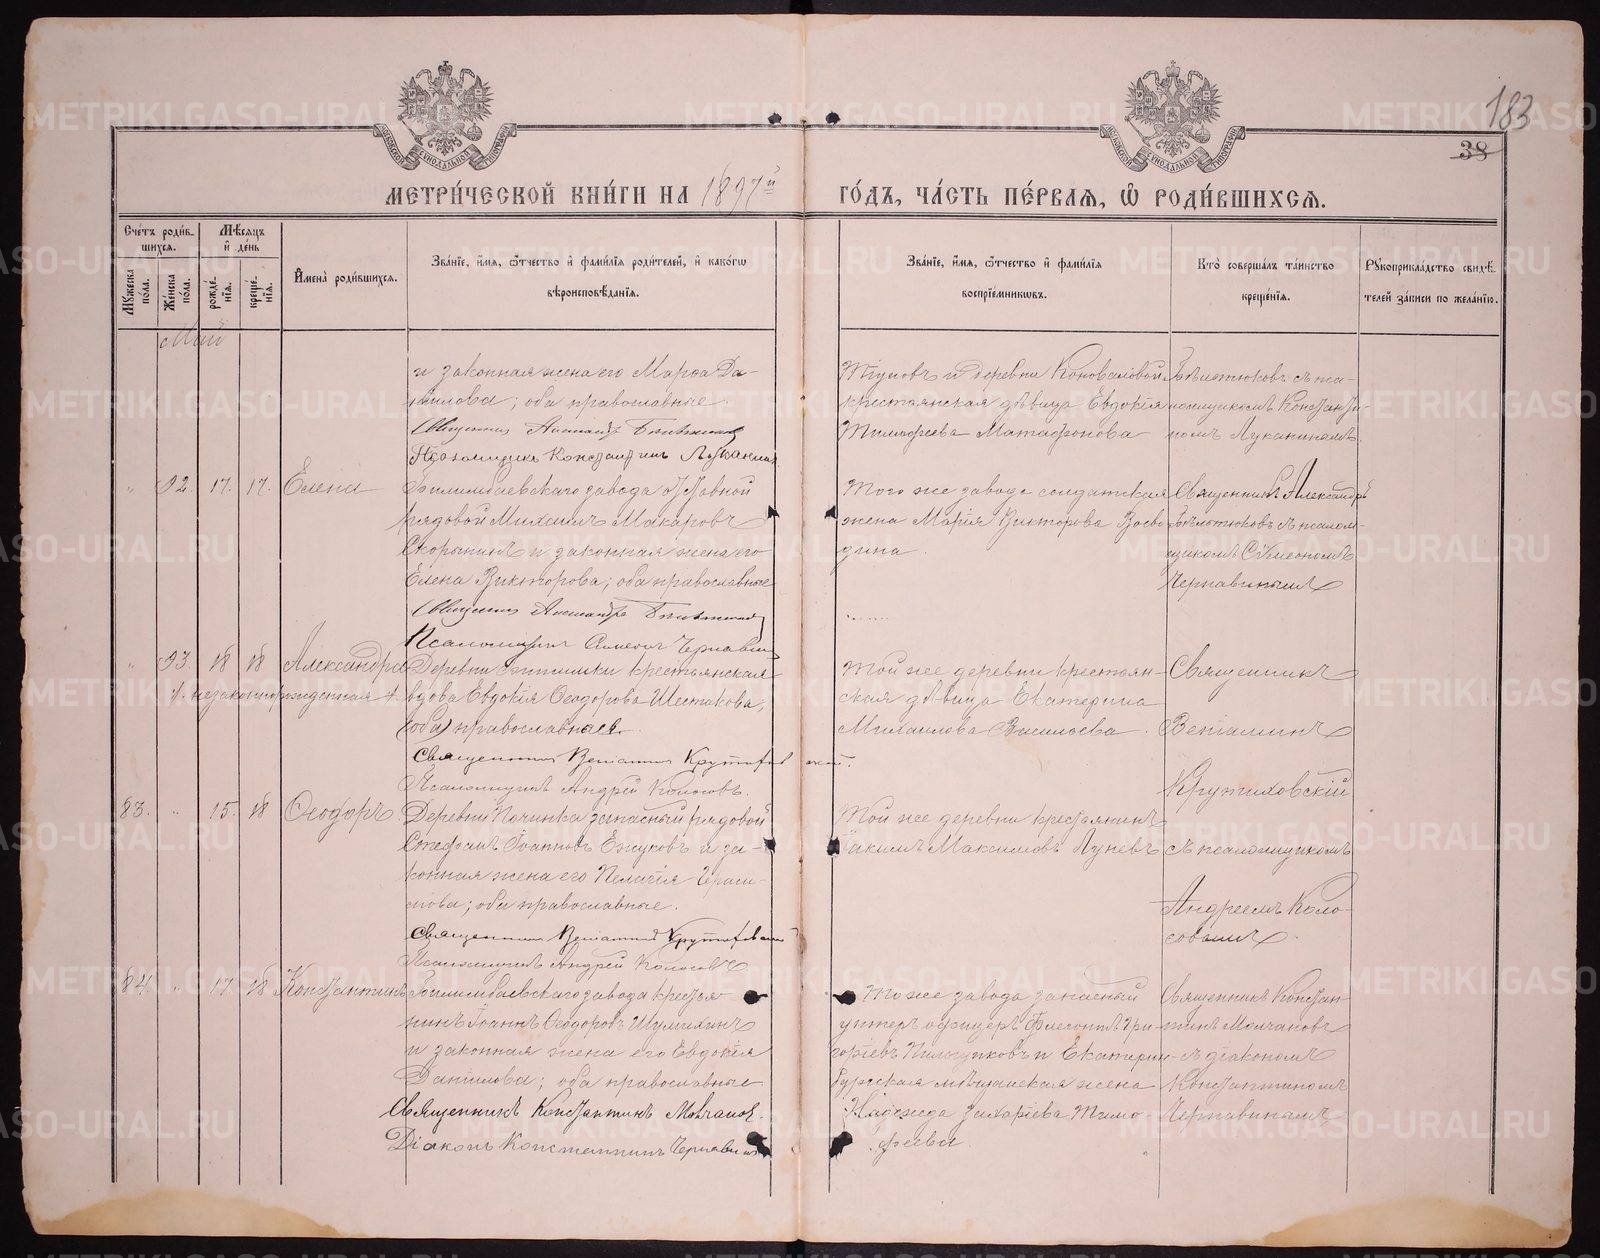 183
38
МЕТРИ́ЧЕСКОЙ КНИ́ГИ НА 1897й ГО́ДЪ, ЧА́СТЬ ПЕ́РВАЯ, Ѡ РОДИ́ВШИХСѦ.
Сче́тъ роди́вшихся.
Мѣ́сяцъ и́ де́нь
И҆мена̀ роди́вшихся.
Зва́нїе, и҆́мя, ѻ҆́тчество и҆ фами́лїя роди́телей, и҆ како́гѡ
вѣроисповѣ́данїя.
Зва́нїе, и҆́мя, ѻ҆́тчество и҆ фами́лїя
воспрїе́мниковъ.
Кто̀ соверша́лъ та́инство
креще́нїя.
Рꙋкоприкла́дство свидѣ́телей за́писи по жела́нїю.
Мꙋ́жеска по́ла.
Же́нска по́ла.
рожде́нїя.
креще́нїя.
Май
и законная жена его Марѳа Да-
нилова; оба православные.
Священникъ Александръ
Псаломщикъ Константинъ Луканинъ
Тіуновъ и деревни Коноваловой
крестьянская дѣвица Евдокія
Тимофеева Матафонова
Бѣлотюковъ съ пса-
ломщикомъ Константи-
номъ Луканинымъ
" 92. 17. 17. Елена
Билимбаевскаго завода отставной
рядовой Михаилъ Макаровъ
Скорынинъ и законная жена его
Елена Викторова; оба православные
Священникъ Александръ
Псаломщикъ Симеонъ Чернавинъ
Того же завода солдатская
жена Марія Викторова Воево
дина.
Священникъ Александръ
Бѣлотюковъ съ псалом-
щикомъ Сѵмеономъ
Чернавинымъ
" 93. 18 18 Александра
незаконнорожденная
крестьянская
вдова Евдокія Ѳеодорова Шестакова,
(оба) православная.
Священникъ Веніаминъ Крутиховскій.
Псаломщикъ Андрей Колосовъ.
Той же деревни крестьян-
ская дѣвица Екатерина
Михаилова Васильева.
Священникъ
Веніаминъ
Крутиховскій
83. " 15. 18 Ѳеодоръ
Деревни Починка запасный рядовой
Стефанъ Іоанновъ Ежуковъ и за-
конная жена его Пелагія Гераси-
мова; оба православные.
Священникъ Веніаминъ Крутиховскій
Псаломщикъ Андрей Колосовъ
Той же деревни крестьянинъ
Іакимъ Максимовъ Лунёвъ
съ псаломщикомъ
Андреемъ Коло-
совымъ.
84. " 17. 18 Константинъ
Билимбаевскаго завода крестья-
нинъ Іоаннъ Ѳеодоровъ Шумихинъ
и законная жена его Евдокія
Даніилова; оба православные
Священникъ Константинъ Молчановъ.
Діаконъ Константинъ Чернавинъ
То же завода запасный
унтеръ офицеръ Флегонтъ Гри-
горіевъ Пильщиковъ и Екатерин-
бургская мѣщанская жена
Надежда Захаріева Тимо
феева
Священникъ Констан-
тинъ Молчановъ
съ діакономъ
Константиномъ
Чернавинымъ
METRIKI.GASO-URAL.RU